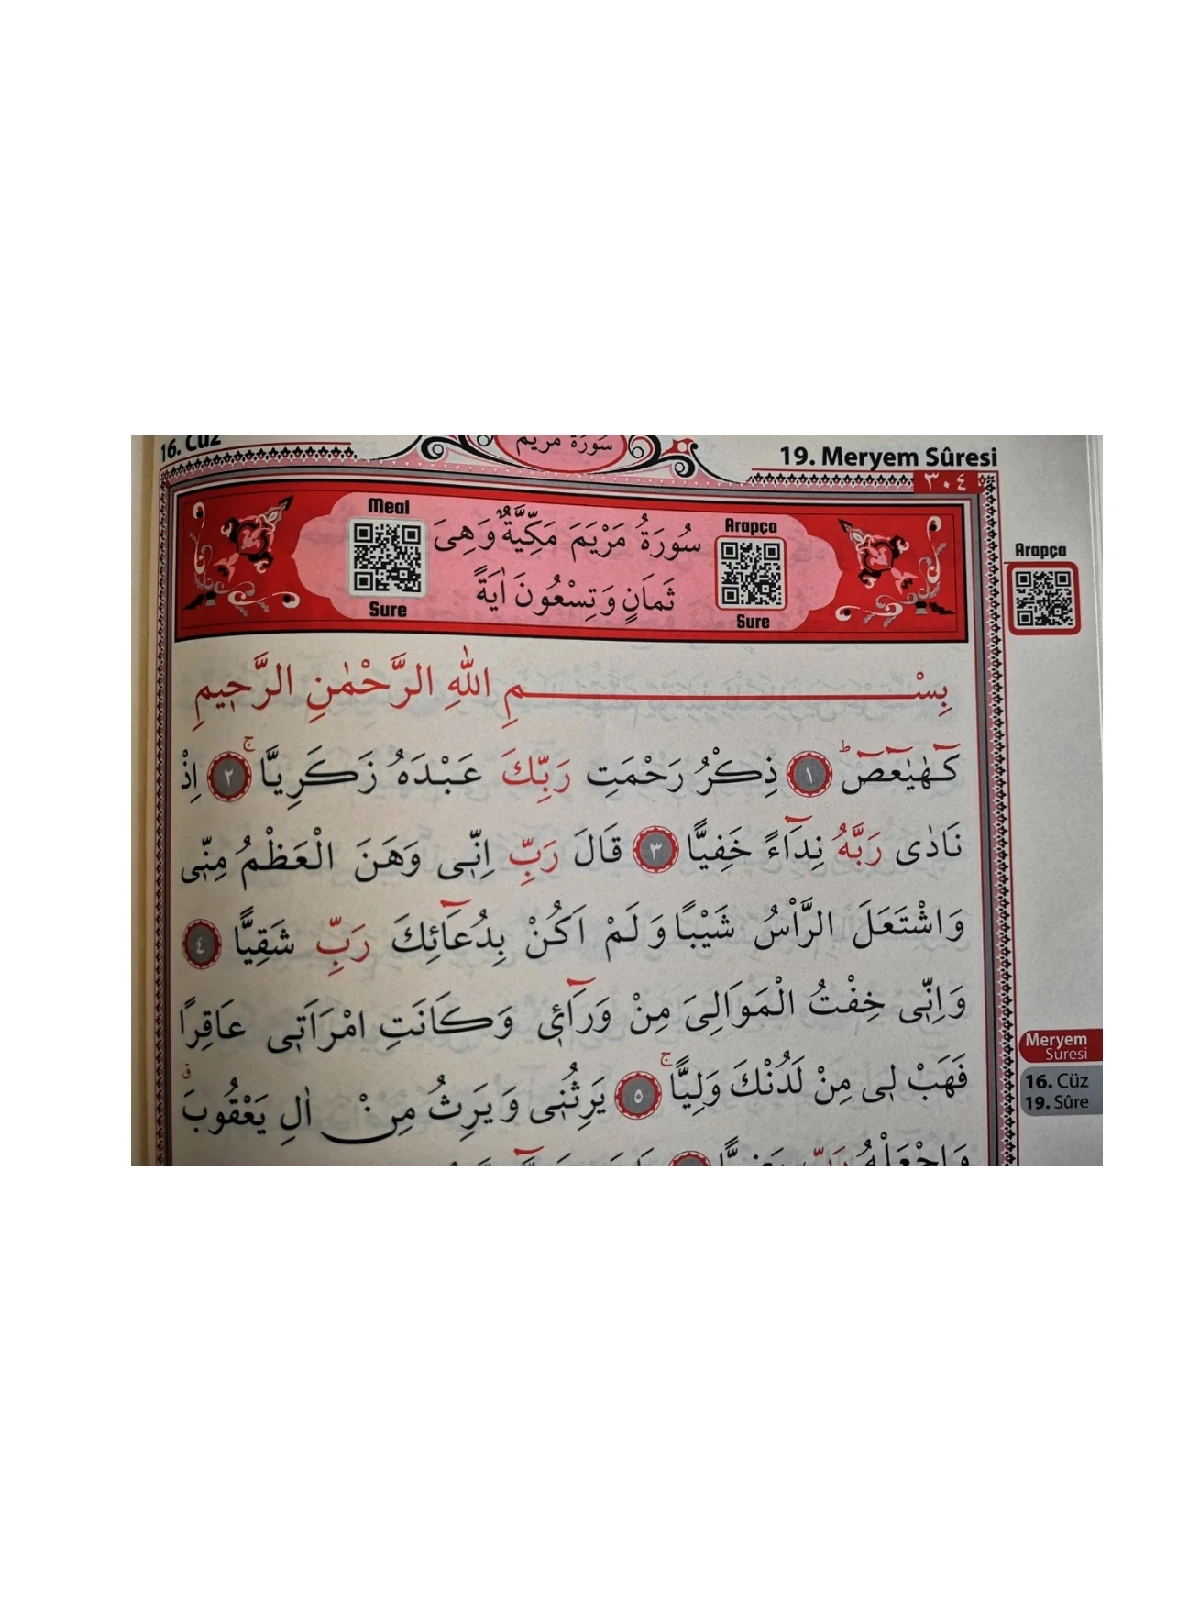 16. Cüz
سورة مريم
19. Meryem Sûresi
٣٠٤
Meal
Sure
سُورَةُ مَرْيَمَ مَكِّيَّةٌ وَهِىَ
ثَمَانٍ وَتِسْعُونَ اٰيَةً
Arapça
Sure
Arapça
بِسْمِ اللّٰهِ الرَّحْمٰنِ الرَّحٖيمِ
كٓهٰيٰعٓصٓ ؕ ﴿١﴾ ذِكْرُ رَحْمَتِ رَبِّكَ عَبْدَهُ زَكَرِيَّا ۚ ﴿٢﴾ اِذْ
نَادٰى رَبَّهُ نِدَٓاءً خَفِيًّا ﴿٣﴾ قَالَ رَبِّ اِنّٖى وَهَنَ الْعَظْمُ مِنّٖى
وَاشْتَعَلَ الرَّاْسُ شَيْبًا وَلَمْ اَكُنْ بِدُعَٓائِكَ رَبِّ شَقِيًّا ﴿٤﴾
وَاِنّٖى خِفْتُ الْمَوَالِىَ مِنْ وَرَٓائٖى وَكَانَتِ امْرَاَتٖى عَاقِرًا
فَهَبْ لٖى مِنْ لَدُنْكَ وَلِيًّا ۚ ﴿٥﴾ يَرِثُنٖى وَيَرِثُ مِنْ اٰلِ يَعْقُوبَ ࣗ
وَاجْعَلْهُ رَبِّ رَضِيًّا
Meryem
Suresi
16. Cüz
19. Sûre